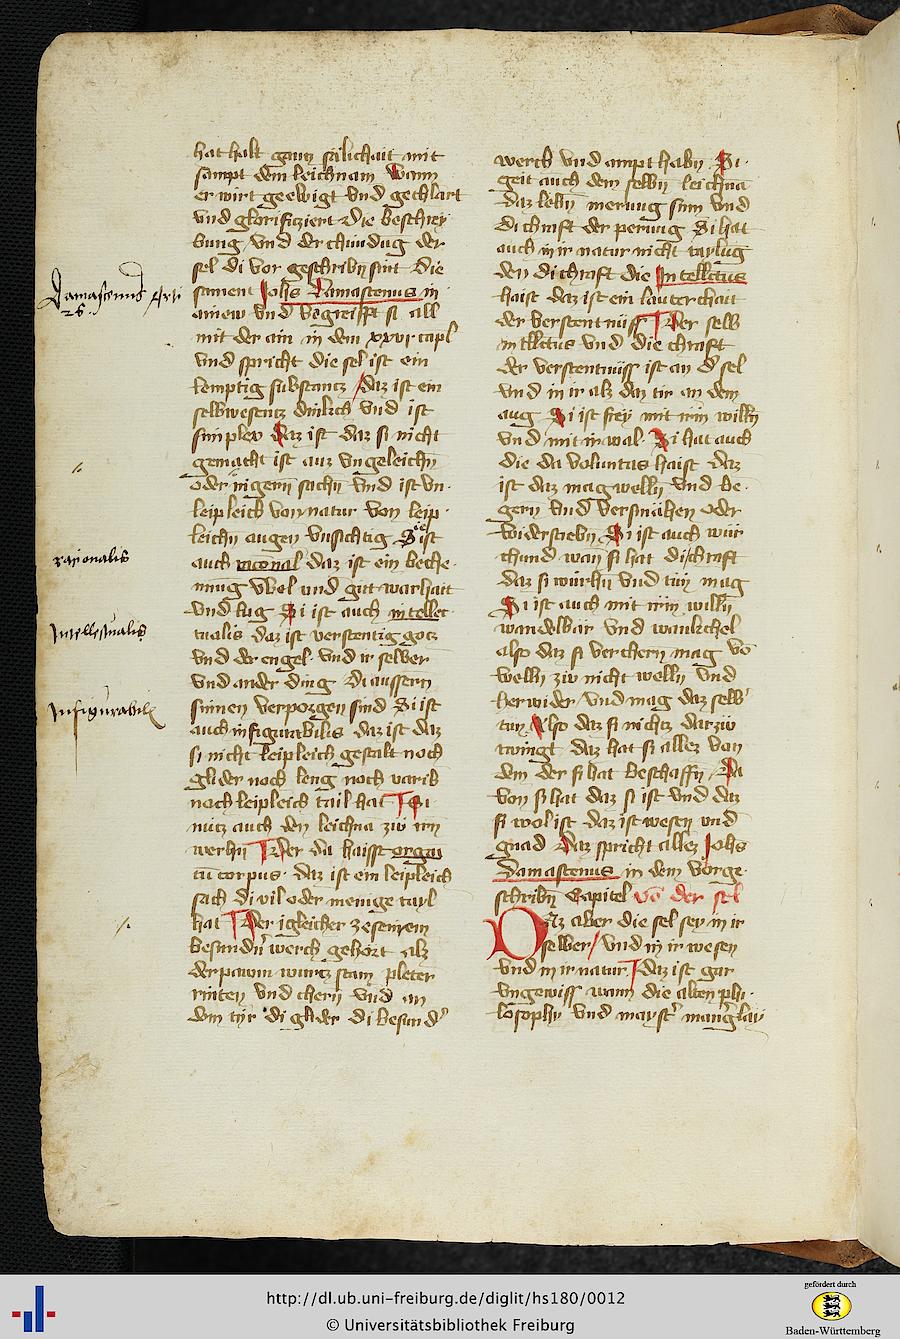 hat halt gancz sälichait mit
sampt dem leichnam Wann
er wirt geewigt vnd geclärt
vnd glorifiziert Die beschrei
bung vnd der chündūg der
sel di vor geschribñ sint die
sament Johs Damascenus in
ainew vnd begreifft si all
mit der ain in dem xxvi capl
vnd spricht die sel ist ein
lemptig substancz / daz ist ein
selbwesentz vnd ist
simplex Daz ist daz si nicht
gemacht ist auz vngeleichñ
oder sachñ vnd ist vn
leipleich von natur von leip
leichñ augen vnsichtig Si ist
auch racional daz ist ein beche
nnūg vbel vnd gut warhait
vnd lug Si ist auch intellec
tualis daz ist verstentig gotz
vnd der engel vnd ir selber
vnd ander ding Di aussern
sinnen verporgen sind Si ist
auch infigurabilis daz ist daz
si nicht leipleich gestalt noch
glider noch leng noch varib
noch leipleich tail hat Si
nützt auch den leichnā zů irn
werhñ Der da haisst orga
tū corpus daz ist ein leipleich
sach di vil oder menige tayl
hat Der igleicher ze seinem
besundñ werch gehört alz
der pawm wurcz stam pleter
rinten vnd chern vnd an
dem tyr di glider di besund
Damascenus
26
rationalis
Intellectualis
Infigurabil
werch vnd ampt habñ Si
geit auch dem selbñ leichnā
daz lebñ merung sinn vnd
di chraft der perung Si hat
auch in ir natur nicht taylūg
den di chraft die Intellctus
haist daz ist ein lauterchait
der verstentnüss Der selb
intllctus vnd die chraft
der verstentnüss ist an d' sel
vnd in ir alz daz an dem
aug Si ist frey mit irm willñ
vnd mit ir wal Si hat auch
die da voluntas haist daz
ist daz mag wellñ vnd be
gern vnd versmähen oder
widerstrebñ Si ist auch wür
chund wan si hat di chraft
daz si würhñ vnd tůn mag
Si ist auch mit irm willñ
wandelbär vnd
also daz si verchern mag vō
wellñ zů nicht wellñ vnd
herwider / vnd mag daz selb
tůn Also daz si nichtz darzů
twingt daz hat si allez von
dem der si hat beschaffñ Da
von si hat daz si ist vnd daz
si wol ist daz ist wesen vnd
gnad Daz spricht allez Johs
Damascenus in dem vorge
schribñ Capitel vō der sel
Daz aber die sel sey in ir
selber / vnd in ir wesen
vnd in ir natur Daz ist gar
vngewiss wann die alten phi
losophy vnd mayst' manglay
http://dl.ub.uni-freiburg.de/diglit/hs180/0012
© Universitätsbibliothek Freiburg
gefördert durch
Baden-Württemberg